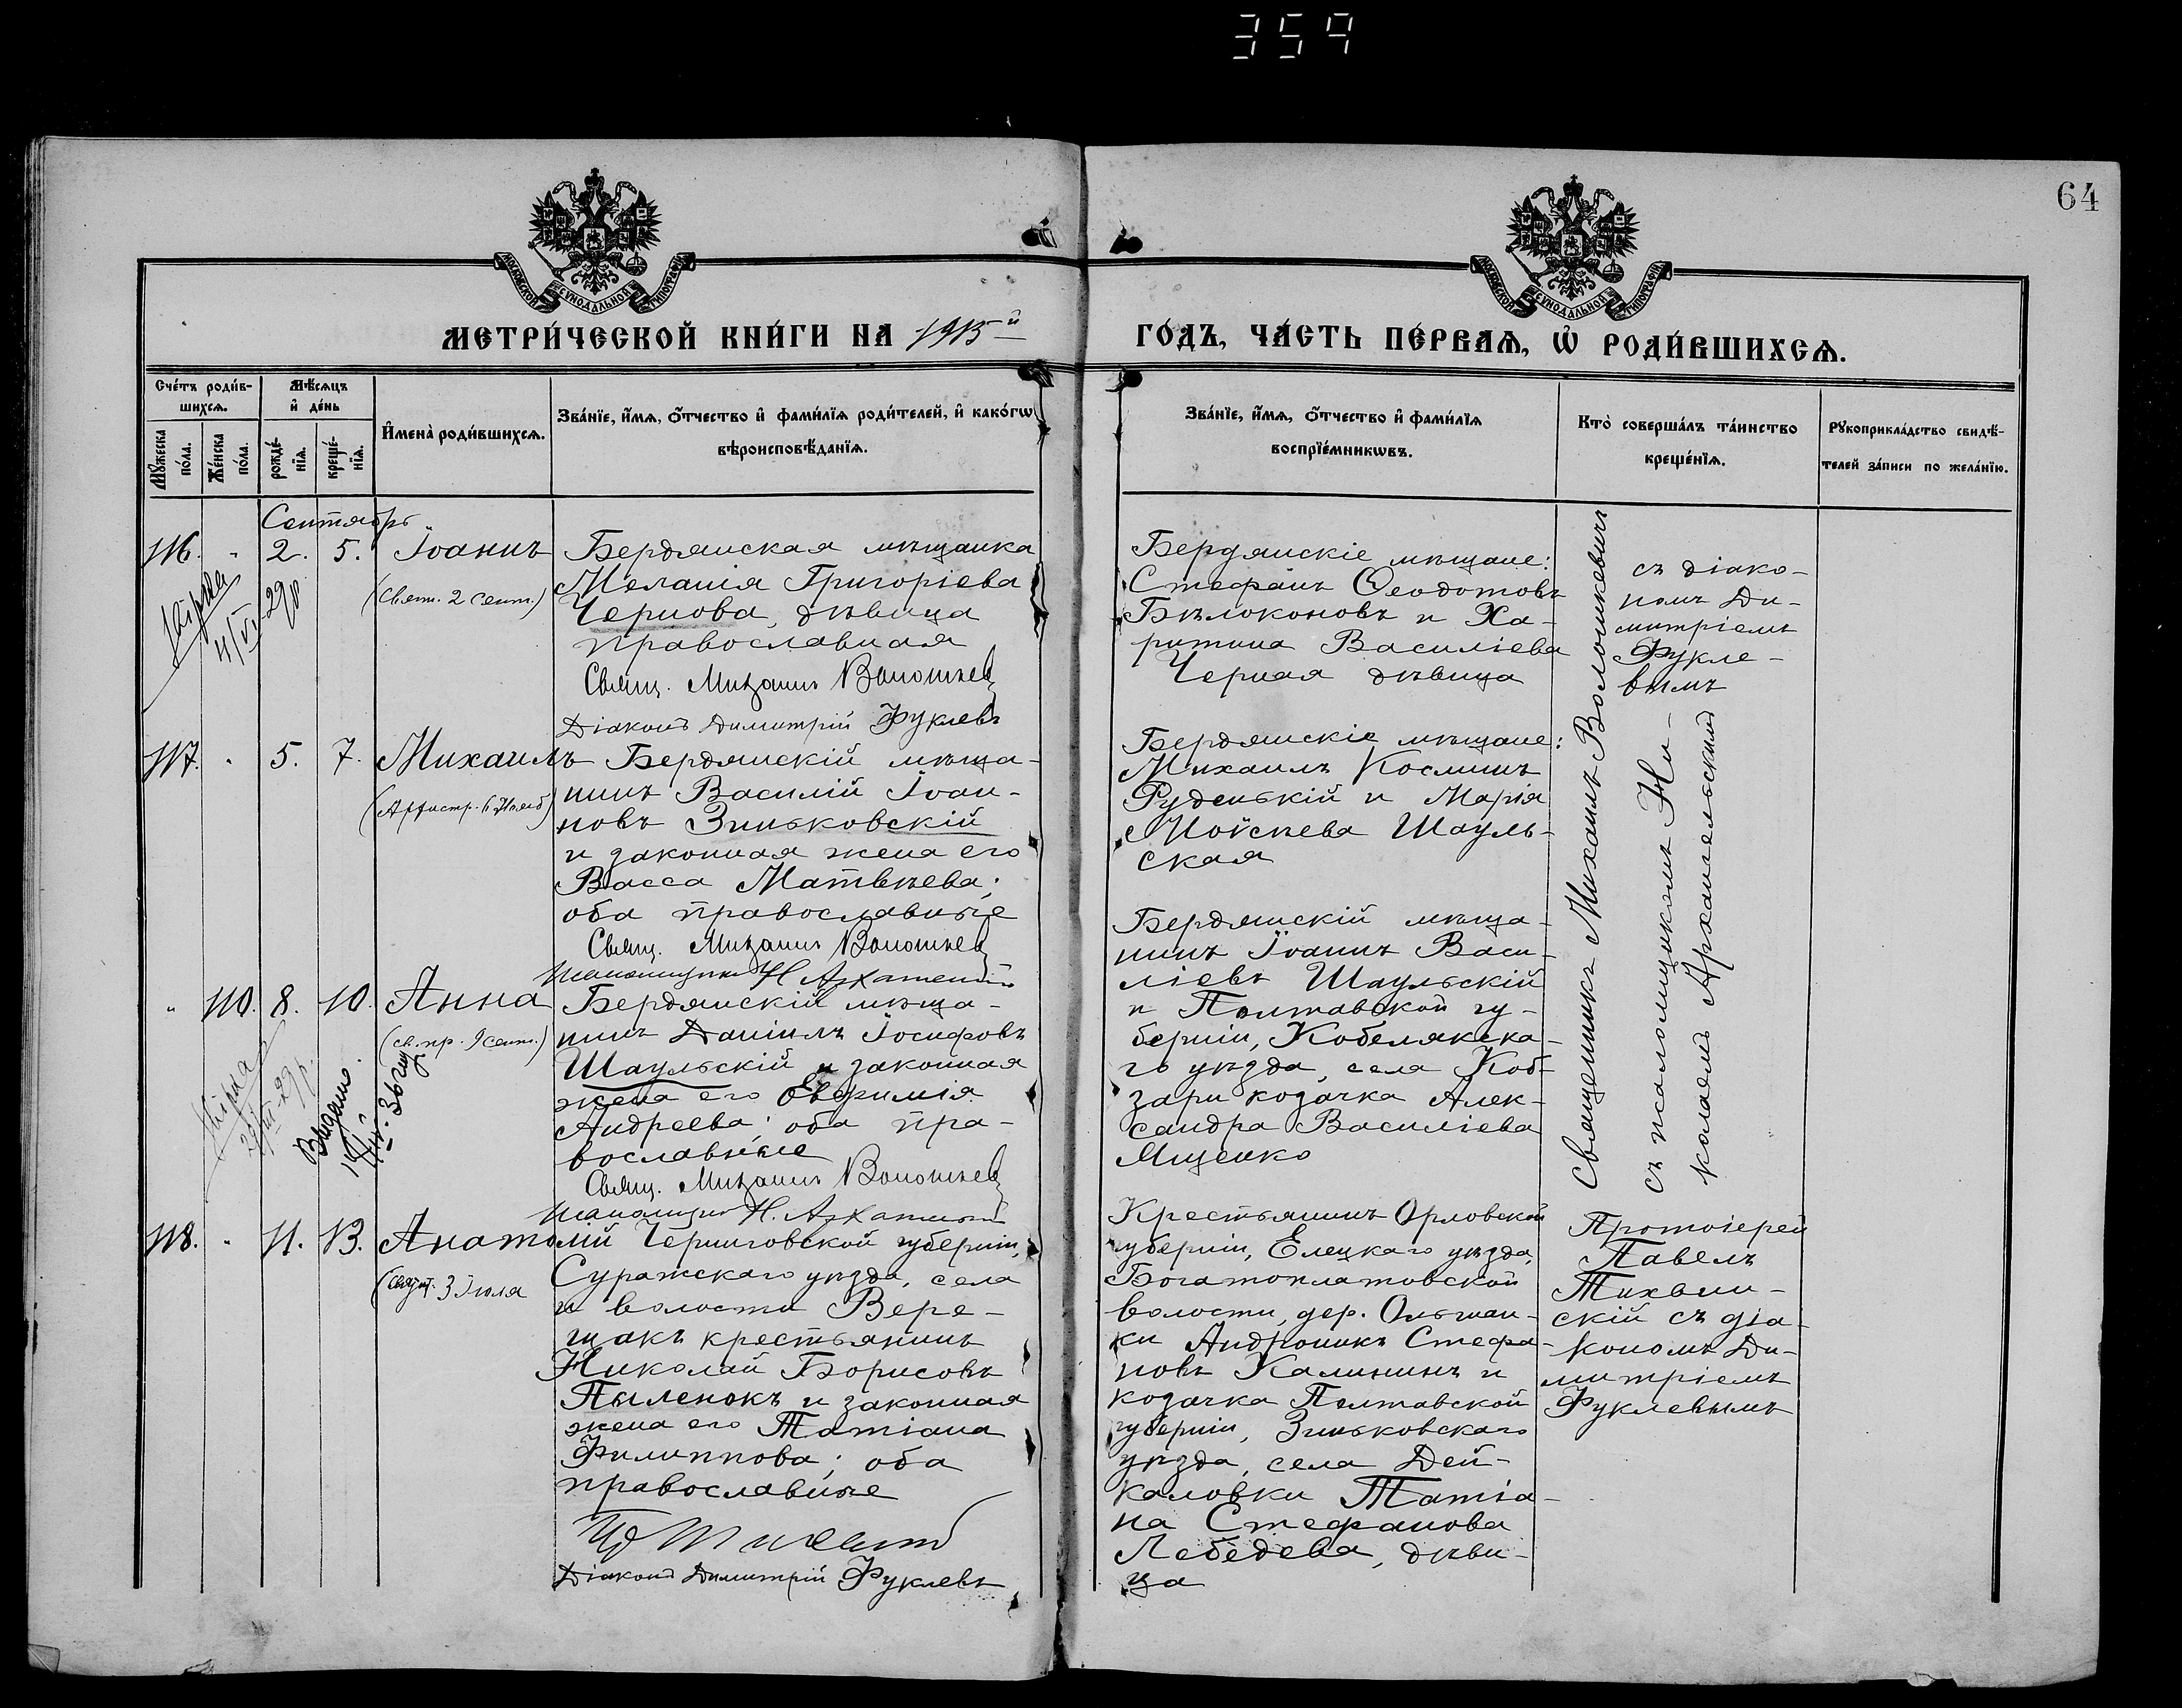 359
64
МОСКОВСКОЙ СѴНОДАЛЬНОЙ ТИПОГРАФІИ
МОСКОВСКОЙ СѴНОДАЛЬНОЙ ТИПОГРАФІИ
МЕТРИ́ЧЕСКОЙ КНИ́ГИ НА 1915 й
ГО́ДЪ, ЧА́СТЬ ПЕ́РВАѦ, Ѡ҆ РОДИ́ВШИХСѦ.
Сче́тъ роди́в-
шихсѧ.
Мѣ́сѧцъ
и҆ де́нь
Мꙋ́жеска
по́ла.
Же́нска
по́ла.
рожде́-
нїѧ.
креще́-
нїѧ.
И҆мена̀ роди́вшихсѧ.
Зва́нїе, и҆́мѧ, ѻ҆́тчество и҆ фами́лїѧ роди́телей, и҆ како́гѡ
вѣроисповѣ́данїѧ.
Зва́нїе, и҆́мѧ, ѻ҆́тчество и҆ фами́лїѧ
воспрїе́мникѡвъ.
Кто̀ соверша́лъ та́инство
креще́нїѧ.
Рꙋкоприкла́дство свидѣ́-
телей за́писи по жела́нїю.
Сентябрь
116. " 2. 5. Іоаннъ
(Свят. 2 сент.)
Бердянская мѣщанка
Меланія Григоріева
Чернова, дѣвица
православная
Свящ. Михаилъ Волошкев
Діаконъ Димитрій Фуклевъ
Бердянскіе мѣщане:
Стефанъ Ѳеодотовъ
Бѣлоконовъ и Ха-
ритина Василіева
Черная дѣвица
Священникъ Михаилъ Волошкевичъ
съ діако-
номъ Ди-
митріемъ
Фукле-
вымъ
117. " 5. 7. Михаилъ
Бердянскій мѣща-
нинъ Василій Іоан-
новъ Зиньковскій
и законная жена его
Васса Матвѣева;
оба православные
Свящ. Михаилъ Волошкев
Бердянскіе мѣщане:
Михаилъ Косминъ
Руденькій и Марія
Мойсеева Шауль-
ская
съ псаломщикомъ Ни-
колаемъ Архангельскимъ
" 110. 8. 10. Анна
(св. пр. 9 сент.)
Выдано
Бердянскій мѣща-
нинъ Даніилъ Іосифовъ
Шаульскій и законная
жена его Евфимія
Андреева; оба пра-
вославные
Свящ. Михаилъ Волошкев
Бердянскій мѣща-
нинъ Іоаннъ Васи-
ліевъ Шаульскій
и Полтавской гу-
берніи, Кобелякска-
го уѣзда, села Коб-
зари козачка Алек-
сандра Василіева
Мщенко
118. " 11. 13. Анатолій
(Свят. 3 Іюля
Черниговской губерніи,
Суражскаго уѣзда, села
и волости Вере-
щакъ крестьянинъ
Николай Борисовъ
Пыленокъ и законная
жена его Татіана
Филиппова; оба
православные
Діаконъ Димитрій Фуклевъ
Крестьянинъ Орловской
губерніи, Елецкаго уѣзда,
Богатоплатовской
волости, дер. Ольшан-
ки Андроникъ Стефа-
новъ Калининъ и
козачка Полтавской
губерніи, Зиньковскаго
уѣзда, села Дей-
каловки Татіа-
на Стефанова
Лебедева, дѣви-
ца
Протоіерей
Павелъ
Тихвин-
скій съ діа-
кономъ Ди-
митріемъ
Фуклевымъ